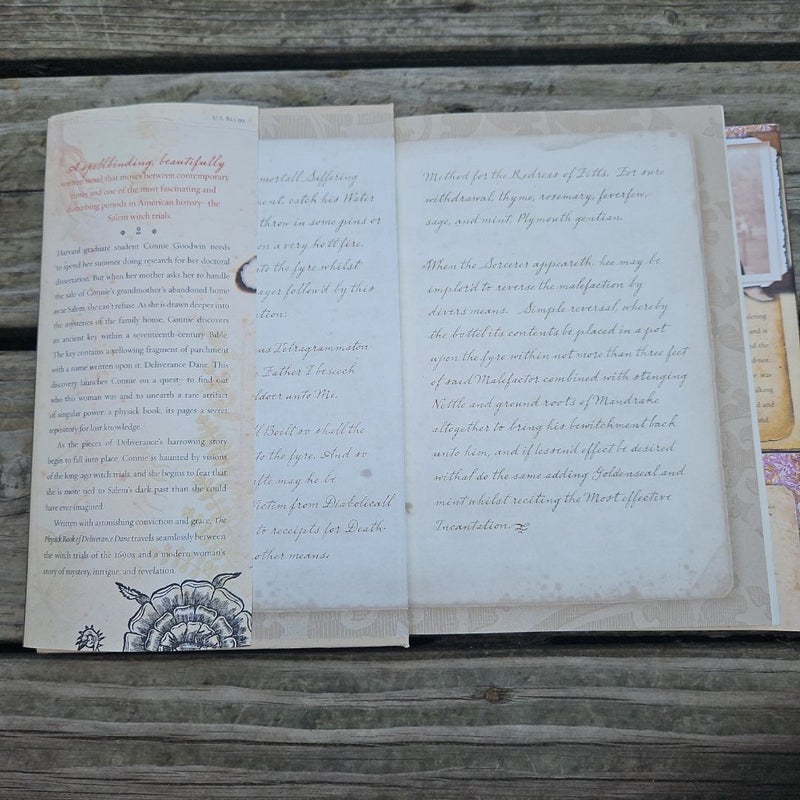 U.S. $25.99
A spellbinding, beautifully
written novel that moves between contemporary
times and one of the most fascinating and
disturbing periods in American history—the
Salem witch trials.
Harvard graduate student Connie Goodwin needs
to spend her summer doing research for her doctoral
dissertation. But when her mother asks her to handle
the sale of Connie's grandmother's abandoned home
near Salem, she can't refuse. As she is drawn deeper into
the mysteries of the family house, Connie discovers
an ancient key within a seventeenth-century Bible.
The key contains a yellowing fragment of parchment
with a name written upon it: Deliverance Dane. This
discovery launches Connie on a quest—to find out
who this woman was and to unearth a rare artifact
of singular power: a physick book, its pages a secret
repository for lost knowledge.
As the pieces of Deliverance's harrowing story
begin to fall into place, Connie is haunted by visions
of the long-ago witch trials, and she begins to fear that
she is more tied to Salem's dark past than she could
have ever imagined.
Written with astonishing conviction and grace, The
Physick Book of Deliverance Dane travels seamlessly between
the witch trials of the 1690s and a modern woman's
story of mystery, intrigue, and revelation.
mortall Suffering
ment, catch his Water
throw in some pins or
on a very hott fire.
nto the fyre whilst
ayer follow'd by this
tion:
us Tetragrammaton
Father I beseech
ldoer unto Me.
ll Boilt so shall the
to the fyre. And so
afte may be
Victim from Diabolicall
to receipts for Death-
other means.
Method for the Redress of Fitts. For sure
withdrawal, thyme, rosemary, feverfew,
sage, and mint, Plymouth gentian.
When the Sorcerer appeareth, hee may be
implor'd to reverse the malefaction by
divers means. Simple reversal, whereby
the bottel its contents be placed in a pot
upon the fyre within not more than three feet
of said Malefactor combined with stinging
Nettle and ground roots of Mandrake
altogether to bring his bewitchment back
unto him, and if less'end effect be desired
withal do the same adding Goldenseal and
mint whilst reciting the Most effective
Incantation.
and is
was
alking
d and
and